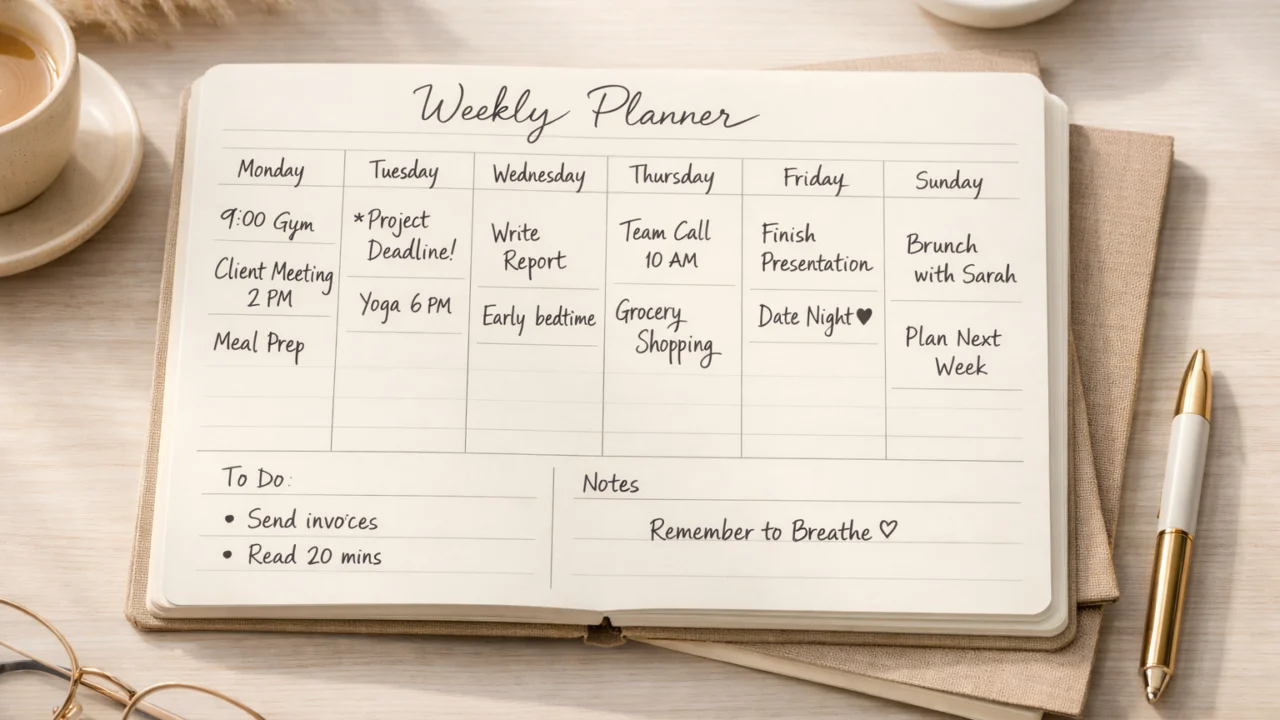 Weekly Planner
Monday
Tuesday
Wednesday
Thursday
Friday
Sunday
9:00 Gym
Client Meeting
2 PM
Meal Prep
*Project
Deadline!
Yoga 6 PM
Write
Report
Early bedtime
Team Call
10 AM
Grocery
Shopping
Finish
Presentation
Date Night♥
Brunch
with Sarah
Plan Next
Week
To Do:
• Send invoices
• Read 20 mins
Notes
Remember to Breathe ♡